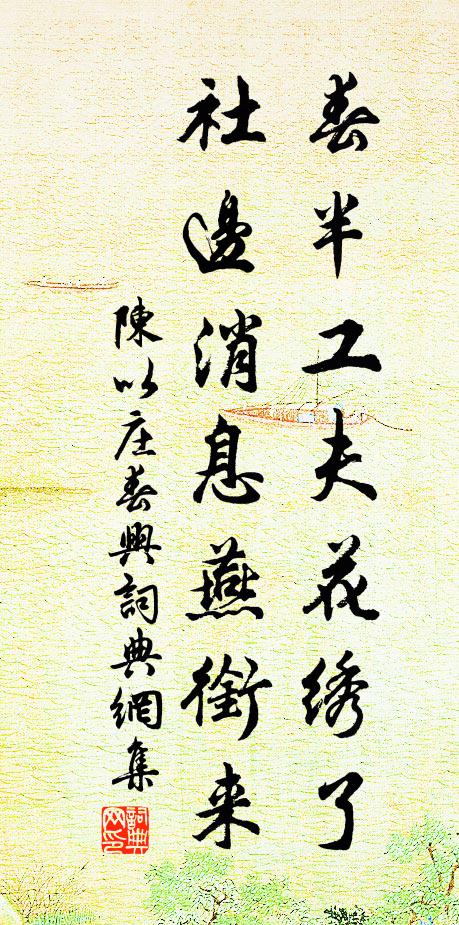 春半工夫花绣了
社邊消息燕銜来
陳以庄春興詞典網集
詞典網印